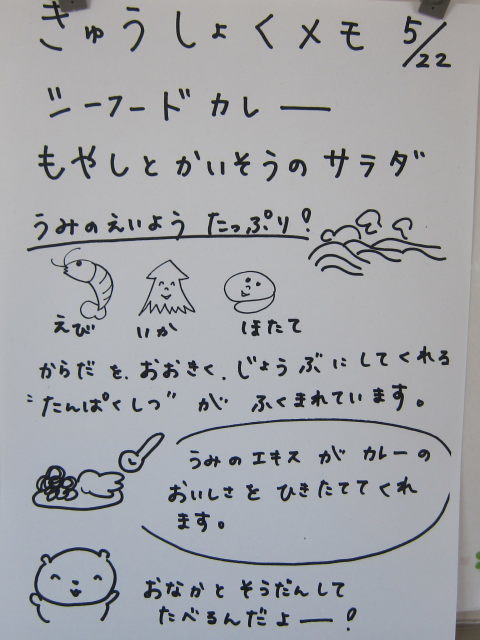 きゅうしょくメモ 5/22
シーフードカレー
もやしとかいそうのサラダ
うみのえいよう たっぷり!
えび いか ほたて
からだを、おおきく、じょうぶにしてくれる
"たんぱくしつ"が ふくまれています。
うみのエキスが カレーの
おいしさを ひきたててくれ
ます。
おなかと そうだんして
たべるんだよー!